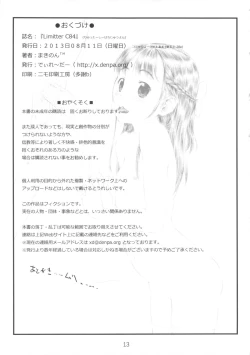 ●おくづけ●
誌名：『Limitter C84』
発行日：２０１３年０８月１１日（日曜日）
著者：まきのん™
発行：でぃれーだー（ http://x.denpa.org/ ）
印刷：ニモ印刷工房（多磯）
■おやくそく■
本書の未成年の購読は 固くお断りしております
また成人であっても、現実と創作物の分別が
つけられないような方や
自責等により著しく不快感・排他的意識を
抱く恐れのある方のような
場合は購読されない事をお勧めします。
個人利用の目的から外れた複製・ネットワーク上への
アップロードなどはしないで頂けるとうれしいです。
この作品はフィクションです。
実在の人物・団体・事情などとは、いっさい関係ありません。
本書の落丁・乱丁は可能な範囲でお取り替えさせて頂きます。
連絡は上記Webサイト上に記載の連絡先などをご利用ください。
※現在の連絡用メールアドレスは xd@denpa.org となっております。
※発行より数年経過している場合は対応しかねる場合がございますので予めご了承ください。
13